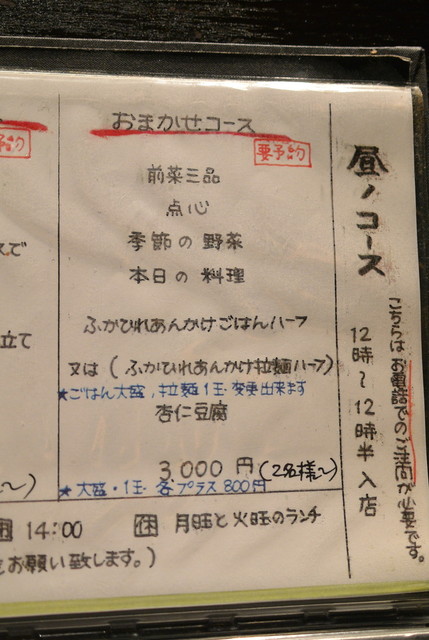 昼ノコース
12時〜12時半入店
こちらはお電話でのご注文が必要です。
おまかせコース
要予約
前菜三品
点心
季節の野菜
本日の料理
ふかひれあんかけごはんハーフ
又は(ふかひれあんかけ拉麺ハーフ)
★ごはん大盛,拉麺1玉変更出来ます
杏仁豆腐
3000円(2名様〜)
★大盛・1玉 各プラス800円
予約
で
立て
〜)
14:00
休 月旺と火旺のランチ
お願い致します。)